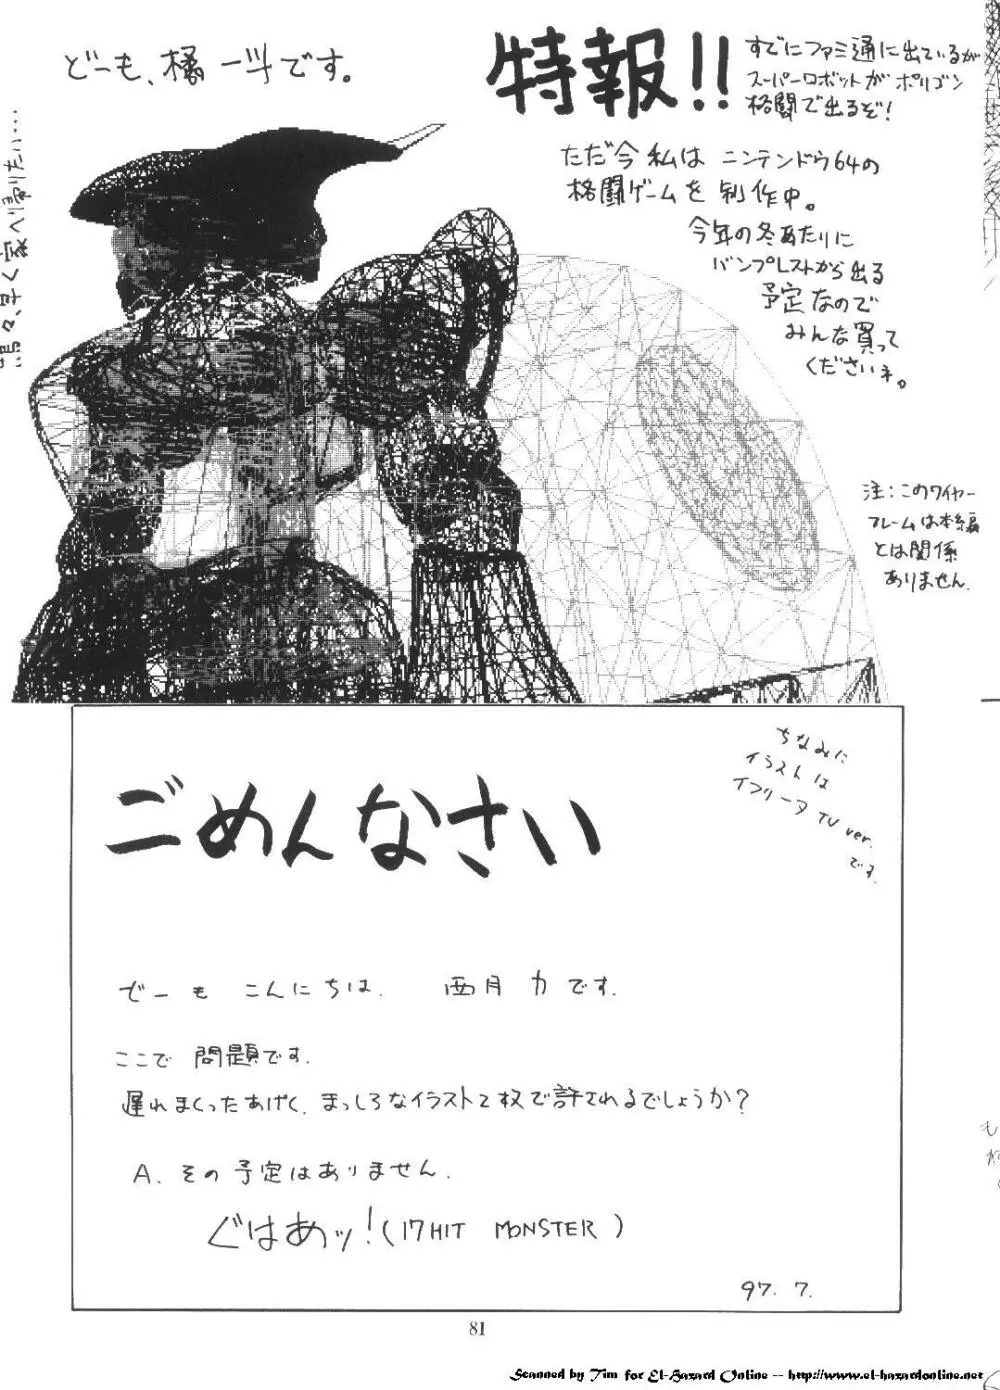 どーも、橘 一斗です。
特報!!
すでにファミ通に出ているが
スーパーロボットがポリゴン
格闘で出るぞ!
ただ今私は ニンテンドウ64の
格闘ゲームを制作中。
今年の冬あたりに
バンプレストから出る
予定なので
みんな買って
くださいネ。
早く家へ帰りたい…
注:このワイヤー
フレームは本編
とは関係
ありません.
ちなみに
イラストは
イフリータ TV ver.
です.
ごめんなさい
どーも こんにちは. 西月 力です.
ここで 問題です.
遅れまくったあげく、まっしろなイラスト2枚で許されるでしょうか?
A. その予定はありません.
ぐはあッ!(17HIT MONSTER)
97. 7.
81
Scanned by Tim for El-Hazard Online -- http://www.el-hazardonline.net